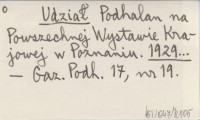 Udział Podhalan na
Powszechnej Wystawie Kra-
jowej w Poznaniu. 1929...
— Gaz. Podh. 17, nr 19.